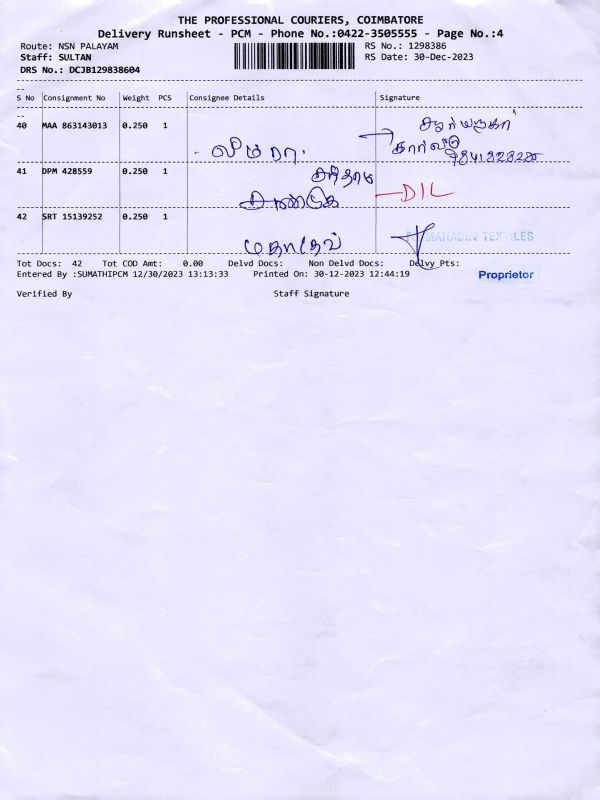 THE PROFESSIONAL COURIERS, COIMBATORE
Delivery Runsheet - PCM - Phone No.:0422-3505555 - Page No.:4
Route: NSN PALAYAM
RS No.: 1298386
Staff: SULTAN
RS Date: 30-Dec-2023
DRS No.: DCJB129838604
S No Consignment No Weight PCS Consignee Details Signature
40 MAA 863143013 0.250 1
விமலா
41 DPM 428559 0.250 1
D/L
42 SRT 15139252 0.250 1
மகாதேவ்
MAHADEV TEXTILES
Tot Docs: 42 Tot COD Amt: 0.00 Delvd Docs: Non Delvd Docs: Delvy Pts:
Entered By :SUMATHIPCM 12/30/2023 13:13:33 Printed On: 30-12-2023 12:44:19
Proprietor
Verified By Staff Signature